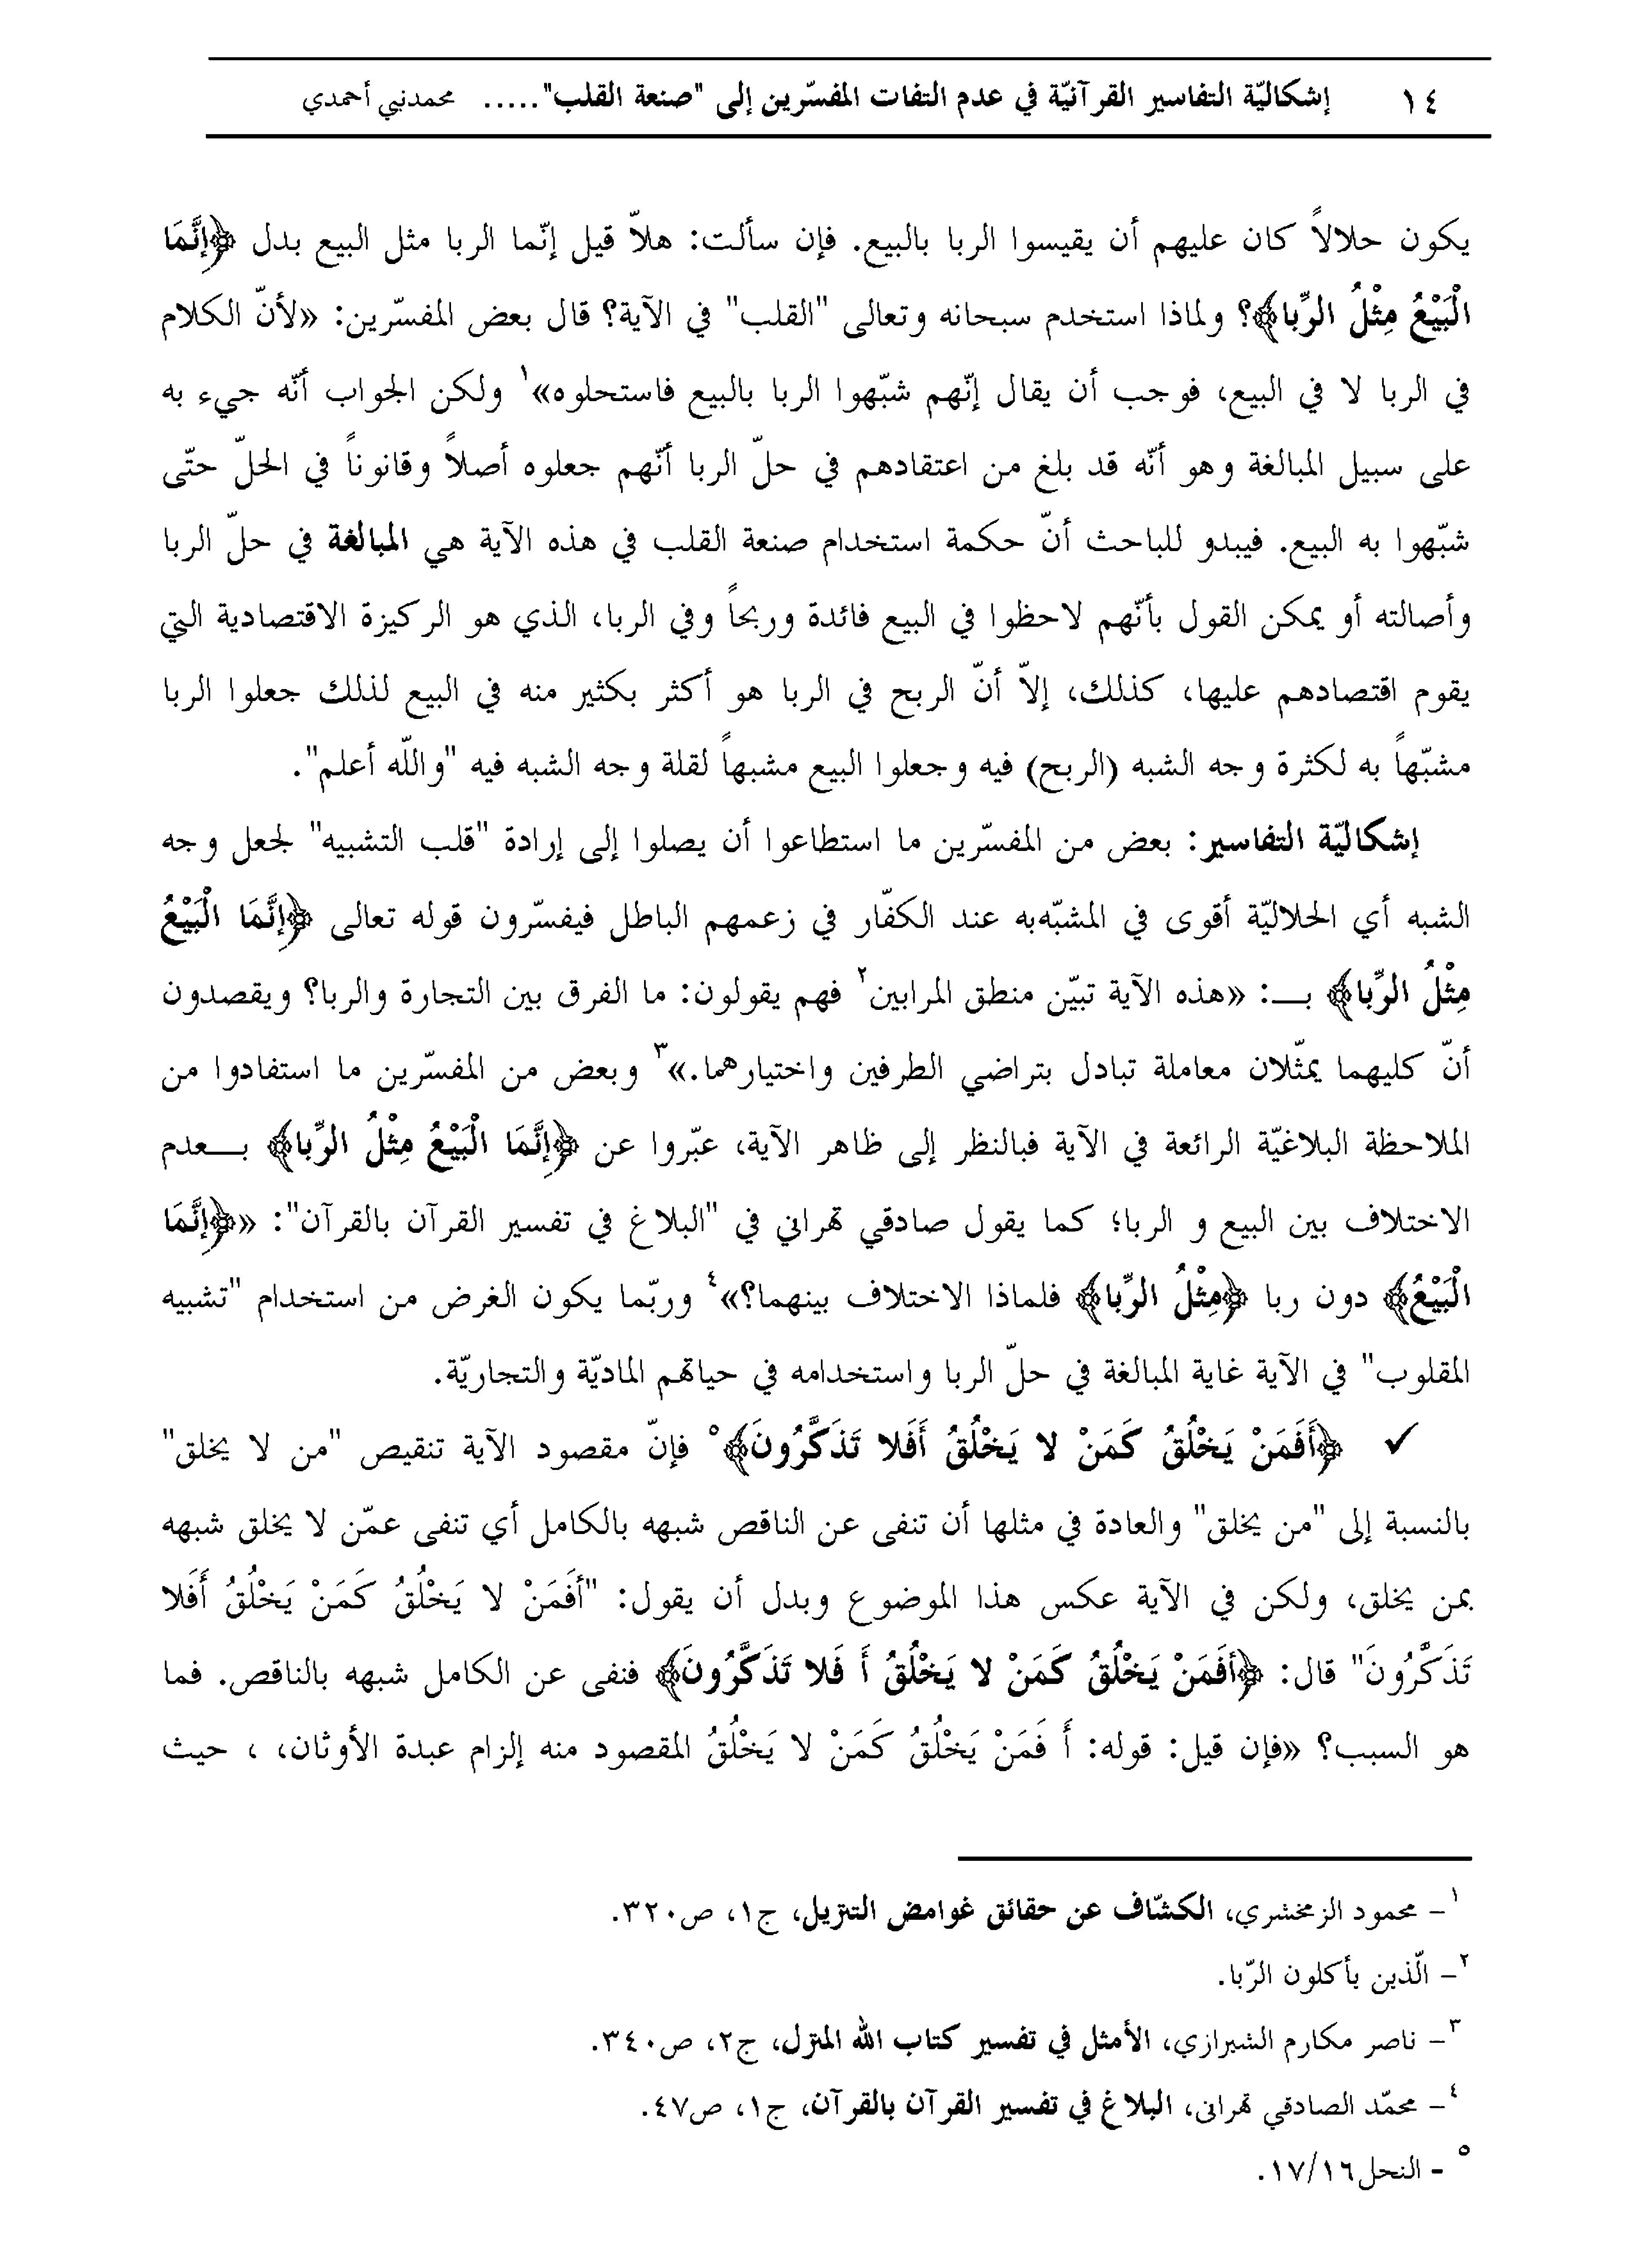 ١٤ إشكاليّة التفاسير القرآنيّة في عدم التفات المفسّرين إلى "صنعة القلب"..... محمدنبي أحمدي
يكون حلالاً كان عليهم أن يقيسوا الربا بالبيع. فإن سألت: هلاّ قيل إنّما الربا مثل البيع بدل ﴿إنَّمَا
الْبَيْعُ مِثْلُ الرِّبا﴾؟ ولماذا استخدم سبحانه وتعالى "القلب" في الآية؟ قال بعض المفسّرين: «لأنّ الكلام
في الربا لا في البيع، فوجب أن يقال إنّهم شبّهوا الربا بالبيع فاستحلوه»١ ولكن الجواب أنّه جيء به
على سبيل المبالغة وهو أنّه قد بلغ من اعتقادهم في حلّ الربا أنّهم جعلوه أصلاً وقانوناً في الحلّ حتّى
شبّهوا به البيع. فيبدو للباحث أنّ حكمة استخدام صنعة القلب في هذه الآية هي المبالغة في حلّ الربا
وأصالته أو يمكن القول بأنّهم لاحظوا في البيع فائدة وربحاً وفي الربا، الذي هو الركيزة الاقتصادية التي
يقوم اقتصادهم عليها، كذلك، إلاّ أنّ الربح في الربا هو أكثر بكثير منه في البيع لذلك جعلوا الربا
مشبّهاً به لكثرة وجه الشبه (الربح) فيه وجعلوا البيع مشبهاً لقلة وجه الشبه فيه "واللّه أعلم".
إشكاليّة التفاسير: بعض من المفسّرين ما استطاعوا أن يصلوا إلى إرادة "قلب التشبيه" لجعل وجه
الشبه أي الحلاليّة أقوى في المشبّه‌به عند الكفّار في زعمهم الباطل فيفسّرون قوله تعالى ﴿إنَّمَا الْبَيْعُ
مِثْلُ الرِّبا﴾ بـــ: «هذه الآية تبيّن منطق المرابين٢ فهم يقولون: ما الفرق بين التجارة والربا؟ ويقصدون
أنّ كليهما يمثّلان معاملة تبادل بتراضي الطرفين واختيارهما.»٣ وبعض من المفسّرين ما استفادوا من
الملاحظة البلاغيّة الرائعة في الآية فبالنظر إلى ظاهر الآية، عبّروا عن ﴿إنَّمَا الْبَيْعُ مِثْلُ الرِّبا﴾ بــعدم
الاختلاف بين البيع و الربا؛ كما يقول صادقي تهراني في "البلاغ في تفسير القرآن بالقرآن": «﴿إنَّمَا
الْبَيْعُ﴾ دون ربا ﴿مِثْلُ الرِّبا﴾ فلماذا الاختلاف بينهما؟»٤ وربّما يكون الغرض من استخدام "تشبيه
المقلوب" في الآية غاية المبالغة في حلّ الربا واستخدامه في حياتهم الماديّة والتجاريّة.
✓ ﴿أَفَمَنْ يَخْلُقُ كَمَنْ لا يَخْلُقُ أَفَلا تَذَكَّرُونَ﴾٥ فإنّ مقصود الآية تنقيص "من لا يخلق"
بالنسبة إلى "من يخلق" والعادة في مثلها أن تنفى عن الناقص شبهه بالكامل أي تنفى عمّن لا يخلق شبهه
بمن يخلق، ولكن في الآية عكس هذا الموضوع وبدل أن يقول: "أَفَمَنْ لا يَخْلُقُ كَمَنْ يَخْلُقُ أَفَلا
تَذَكَّرُونَ" قال: ﴿أفَمَنْ يَخْلُقُ كَمَنْ لا يَخْلُقُ أَ فَلا تَذَكَّرُونَ﴾ فنفى عن الكامل شبهه بالناقص. فما
هو السبب؟ «فإن قيل: قوله: أَ فَمَنْ يَخْلُقُ كَمَنْ لا يَخْلُقُ المقصود منه إلزام عبدة الأوثان، ، حيث
١- محمود الزمخشري، الكشّاف عن حقائق غوامض التنزيل، ج١، ص٣٢٠.
٢- الّذين بأكلون الرّبا.
٣- ناصر مكارم الشيرازي، الأمثل في تفسير كتاب الله المنزل، ج٢، ص٣٤٠.
٤- محمّد الصادقي تهرانى، البلاغ في تفسير القرآن بالقرآن، ج١، ص٤٧.
٥ - النحل١٧/١٦.